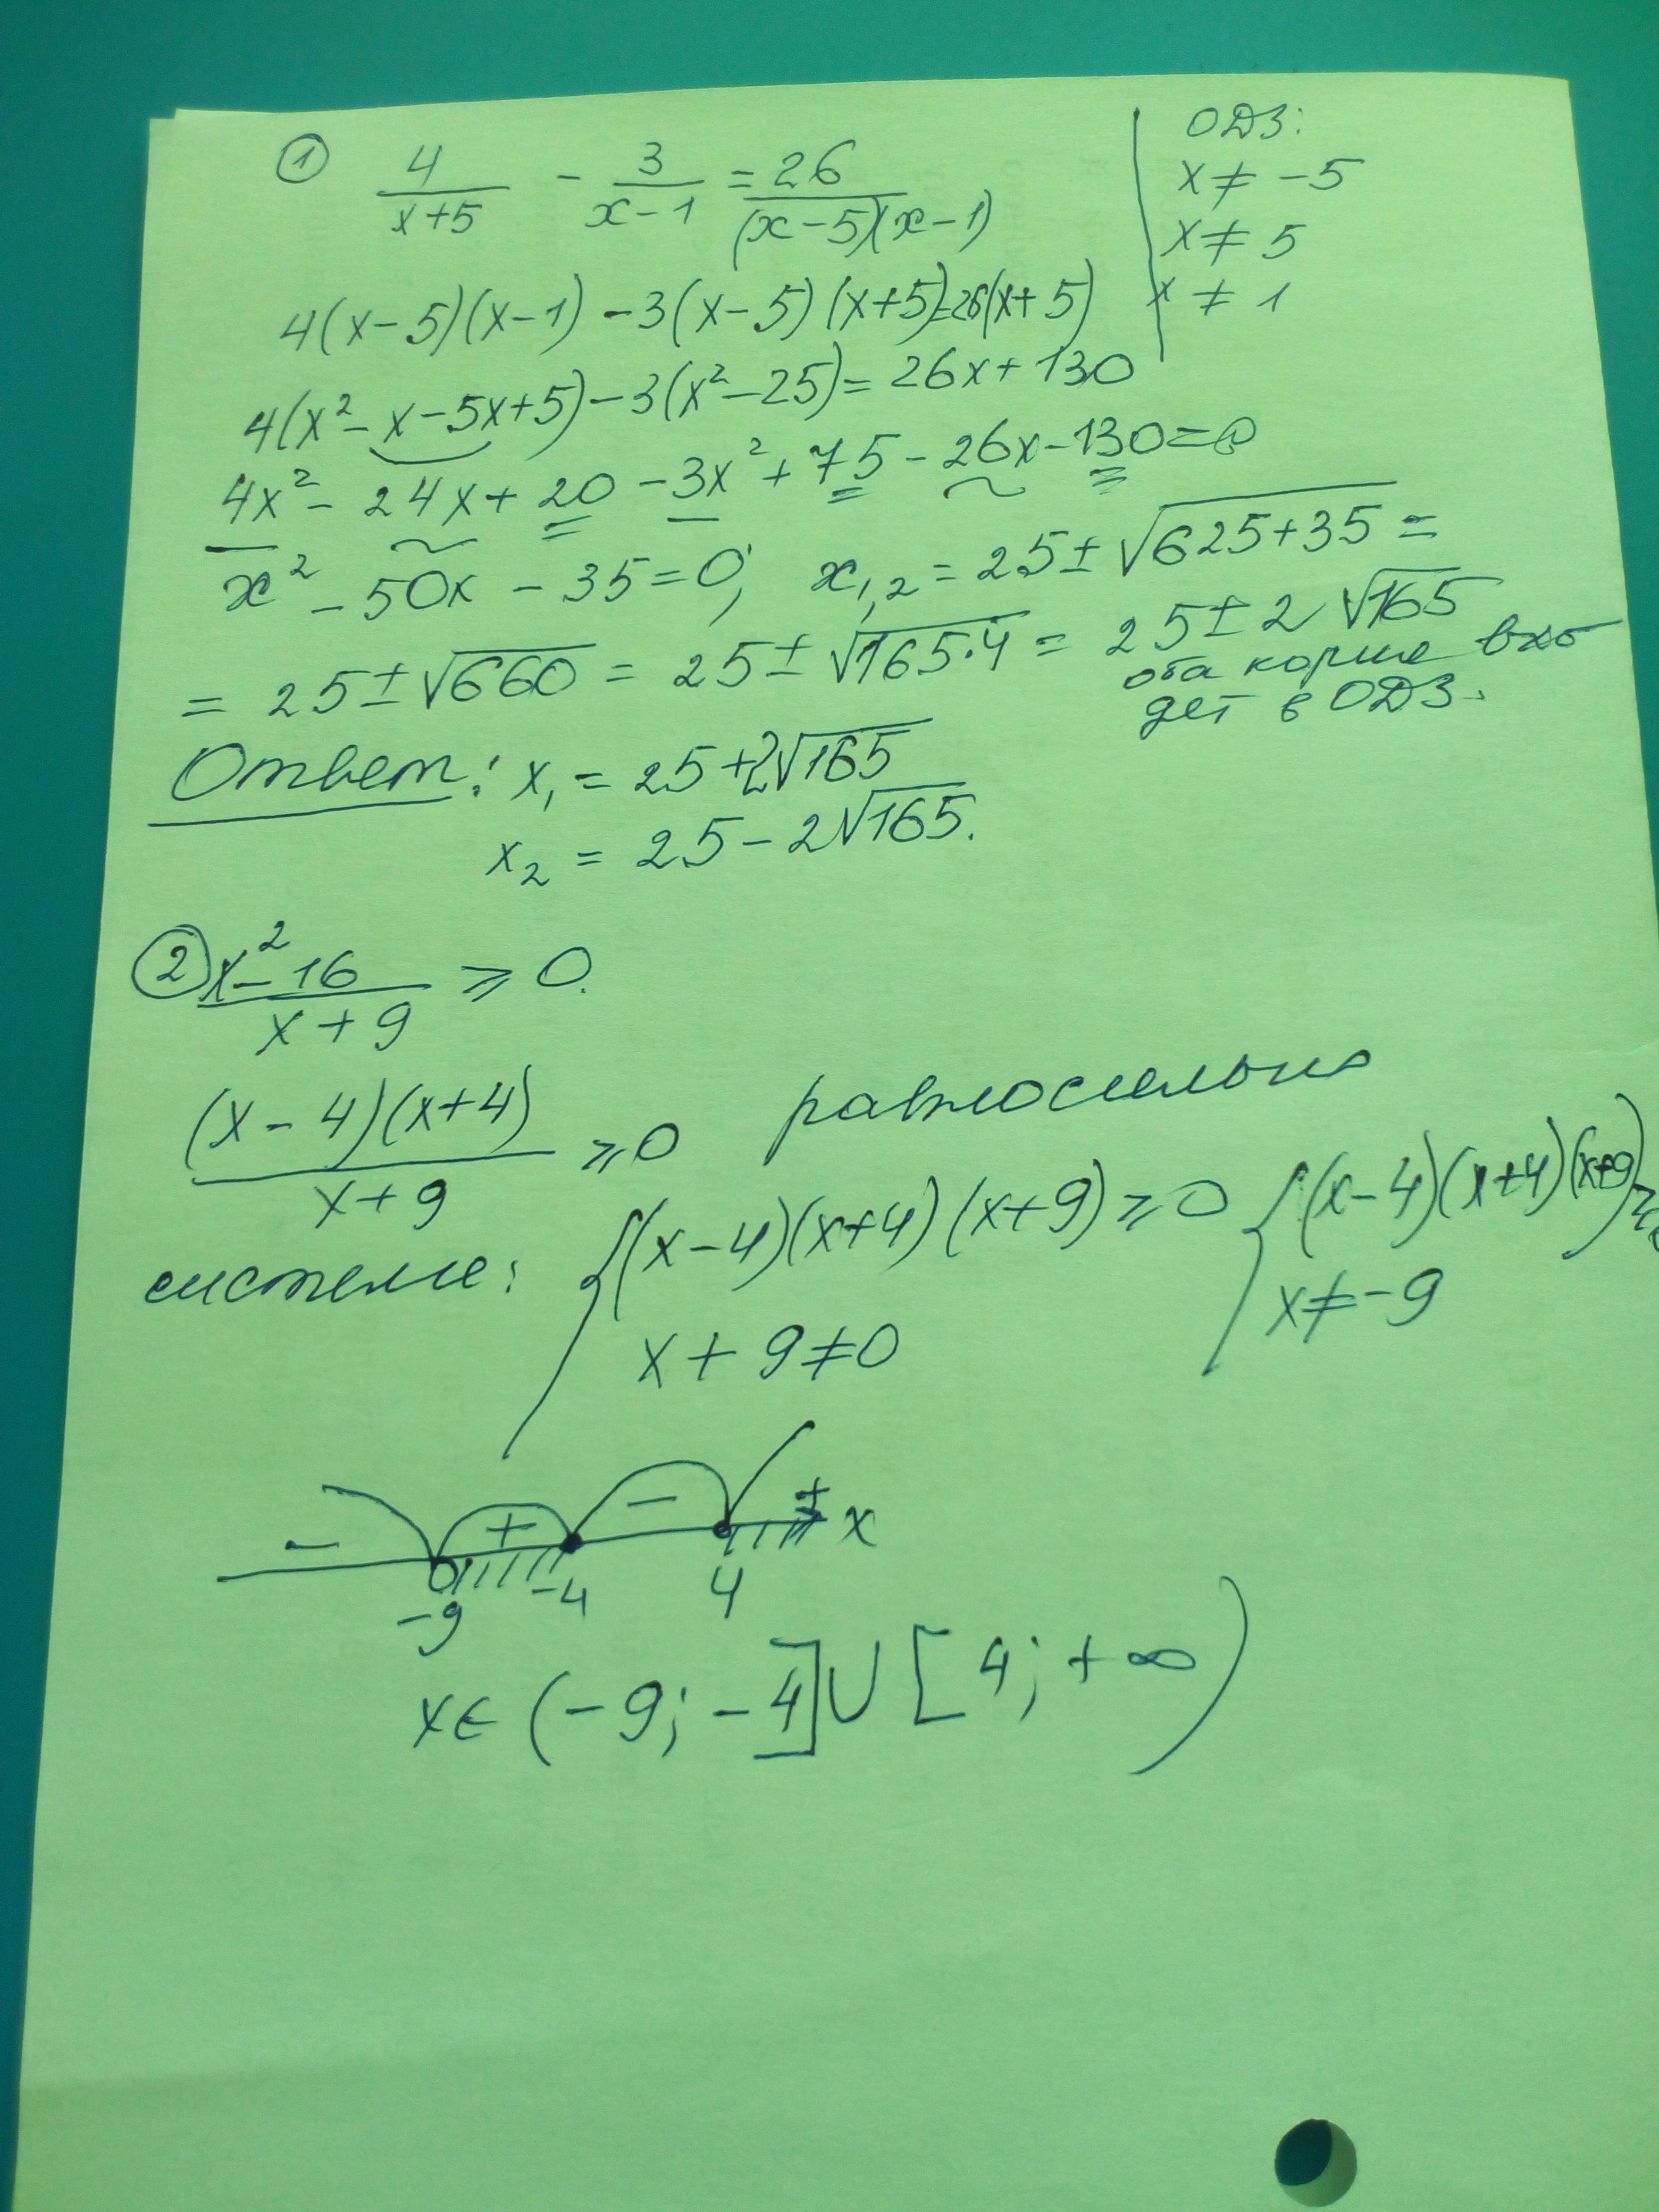 ① 4/(x+5) - 3/(x-1) = 26/((x-5)(x-1))
ОДЗ:
x ≠ -5
x ≠ 5
x ≠ 1
4(x-5)(x-1) - 3(x-5)(x+5) = 26(x+5)
4(x² - x - 5x + 5) - 3(x² - 25) = 26x + 130
4x² - 24x + 20 - 3x² + 75 - 26x - 130 = 0
x² - 50x - 35 = 0; x₁,₂ = 25 ± √(625+35) =
= 25 ± √660 = 25 ± √(165·4) = 25 ± 2√165
оба корня вхо
дят в ОДЗ.
Ответ: x₁ = 25 + 2√165
x₂ = 25 - 2√165.
② (x² - 16)/(x + 9) ≥ 0.
((x - 4)(x + 4))/(x + 9) ≥ 0 равносильно
системе: { (x-4)(x+4)(x+9) ≥ 0 { (x-4)(x+4)(x+9) ≥
x + 9 ≠ 0 x ≠ -9
- + - + x
-9 -4 4
x ∈ (-9; -4] ∪ [4; +∞)